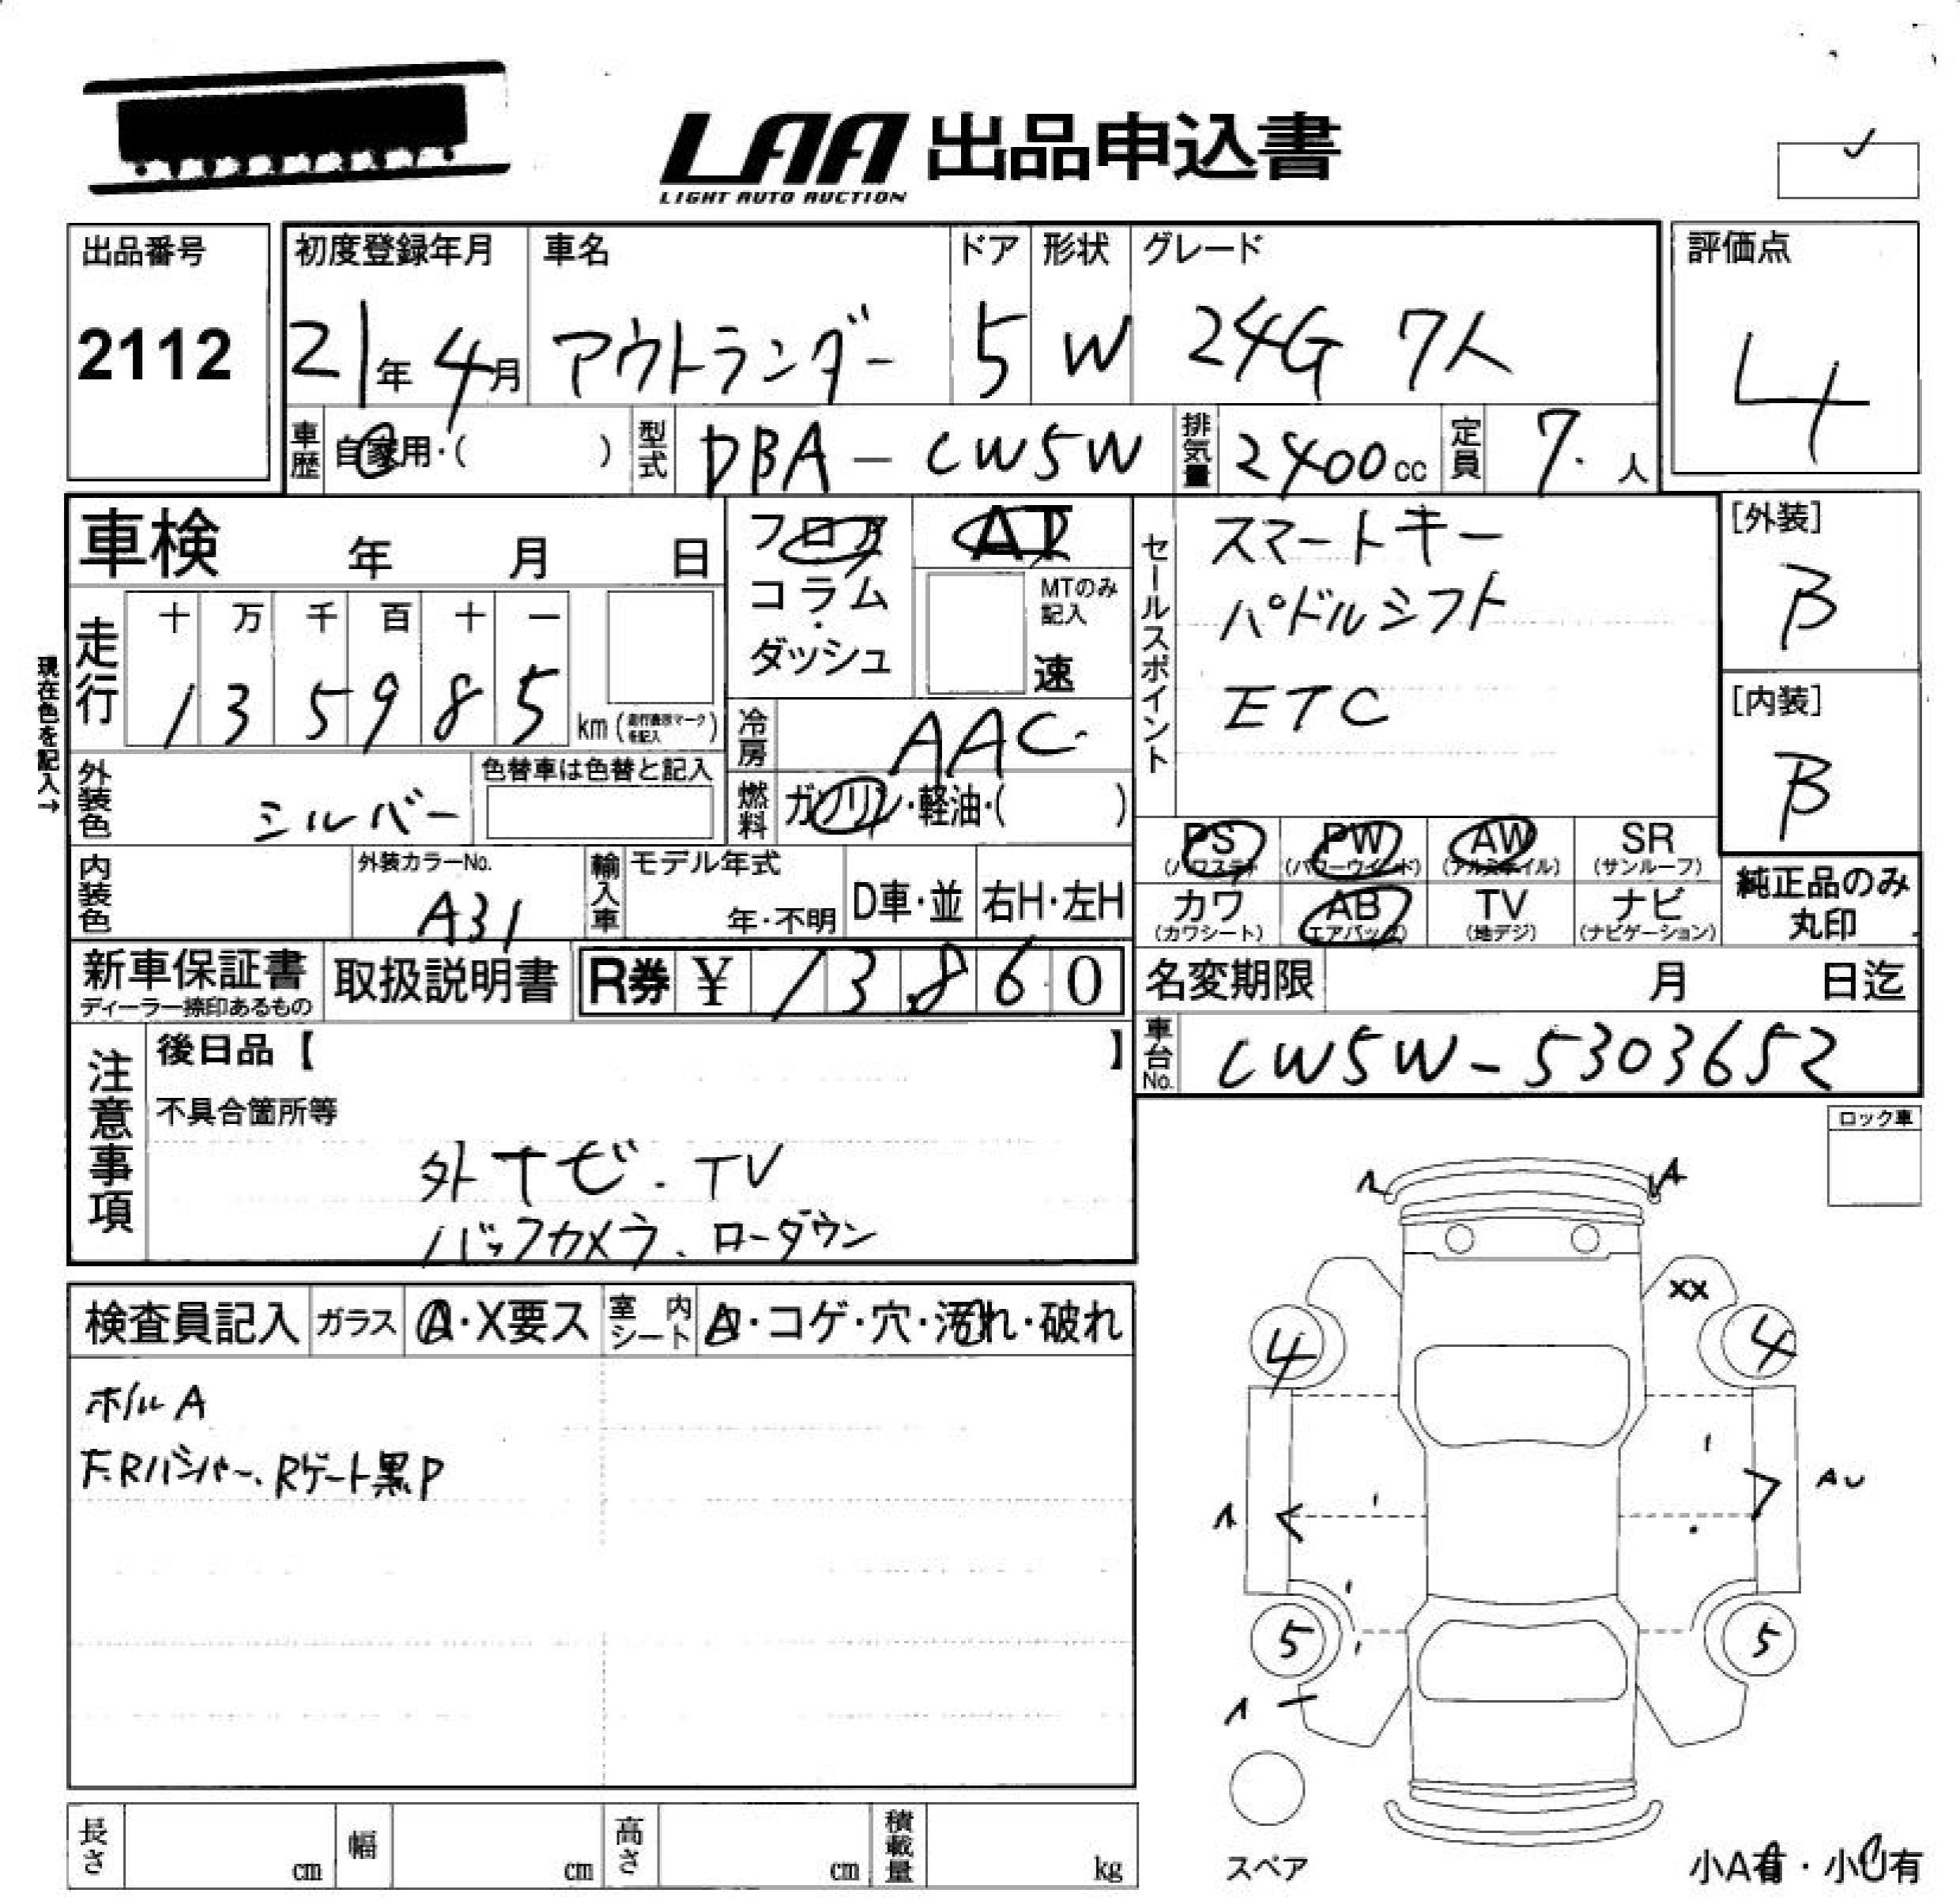 LAA 出品申込書
LIGHT AUTO AUCTION
出品番号
2112
初度登録年月
21年 4月
車名
アウトランダー
ドア
5
形状
W
グレード
24G 7人
評価点
4
車歴
自家用・( )
型式
DBA - CW5W
排気量
2400cc
定員
7. 人
車検 年 月 日
フロア
コラム
・
ダッシュ
AT
MTのみ
記入
速
セールスポイント
スマートキー
パドルシフト
ETC
[外装]
B
[内装]
B
現在色を記入→
走行
十 万 千 百 十 一
1 3 5 9 8 5
km(走行表示マークを記入)
冷房
AAC.
外装色
シルバー
色替車は色替と記入
燃料
ガソリン・軽油・( )
PS
(パワステ)
PW
(パワーウインド)
AW
(アルミホイル)
SR
(サンルーフ)
カワ
(カワシート)
AB
(エアバッグ)
TV
(地デジ)
ナビ
(ナビゲーション)
純正品のみ
丸印
内装色
外装カラーNo.
A31
輸入車
モデル年式
年・不明
D車・並
右H・左H
新車保証書
ディーラー捺印あるもの
取扱説明書
R券 ¥ 13860
名変期限 月 日迄
車台No.
CW5W-5303652
注意事項
後日品【 】
不具合箇所等
外ナビ. TV
バックカメラ、ローダウン
ロック車
検査員記入
ガラス
A・X要ス
室内シート
A・コゲ・穴・汚れ・破れ
F.Rバンパー、Rゲート黒P
A
XX
4
4
AU
5
5
スペア
小A有・小U有
長さ cm
幅 cm
高さ cm
積載量 kg